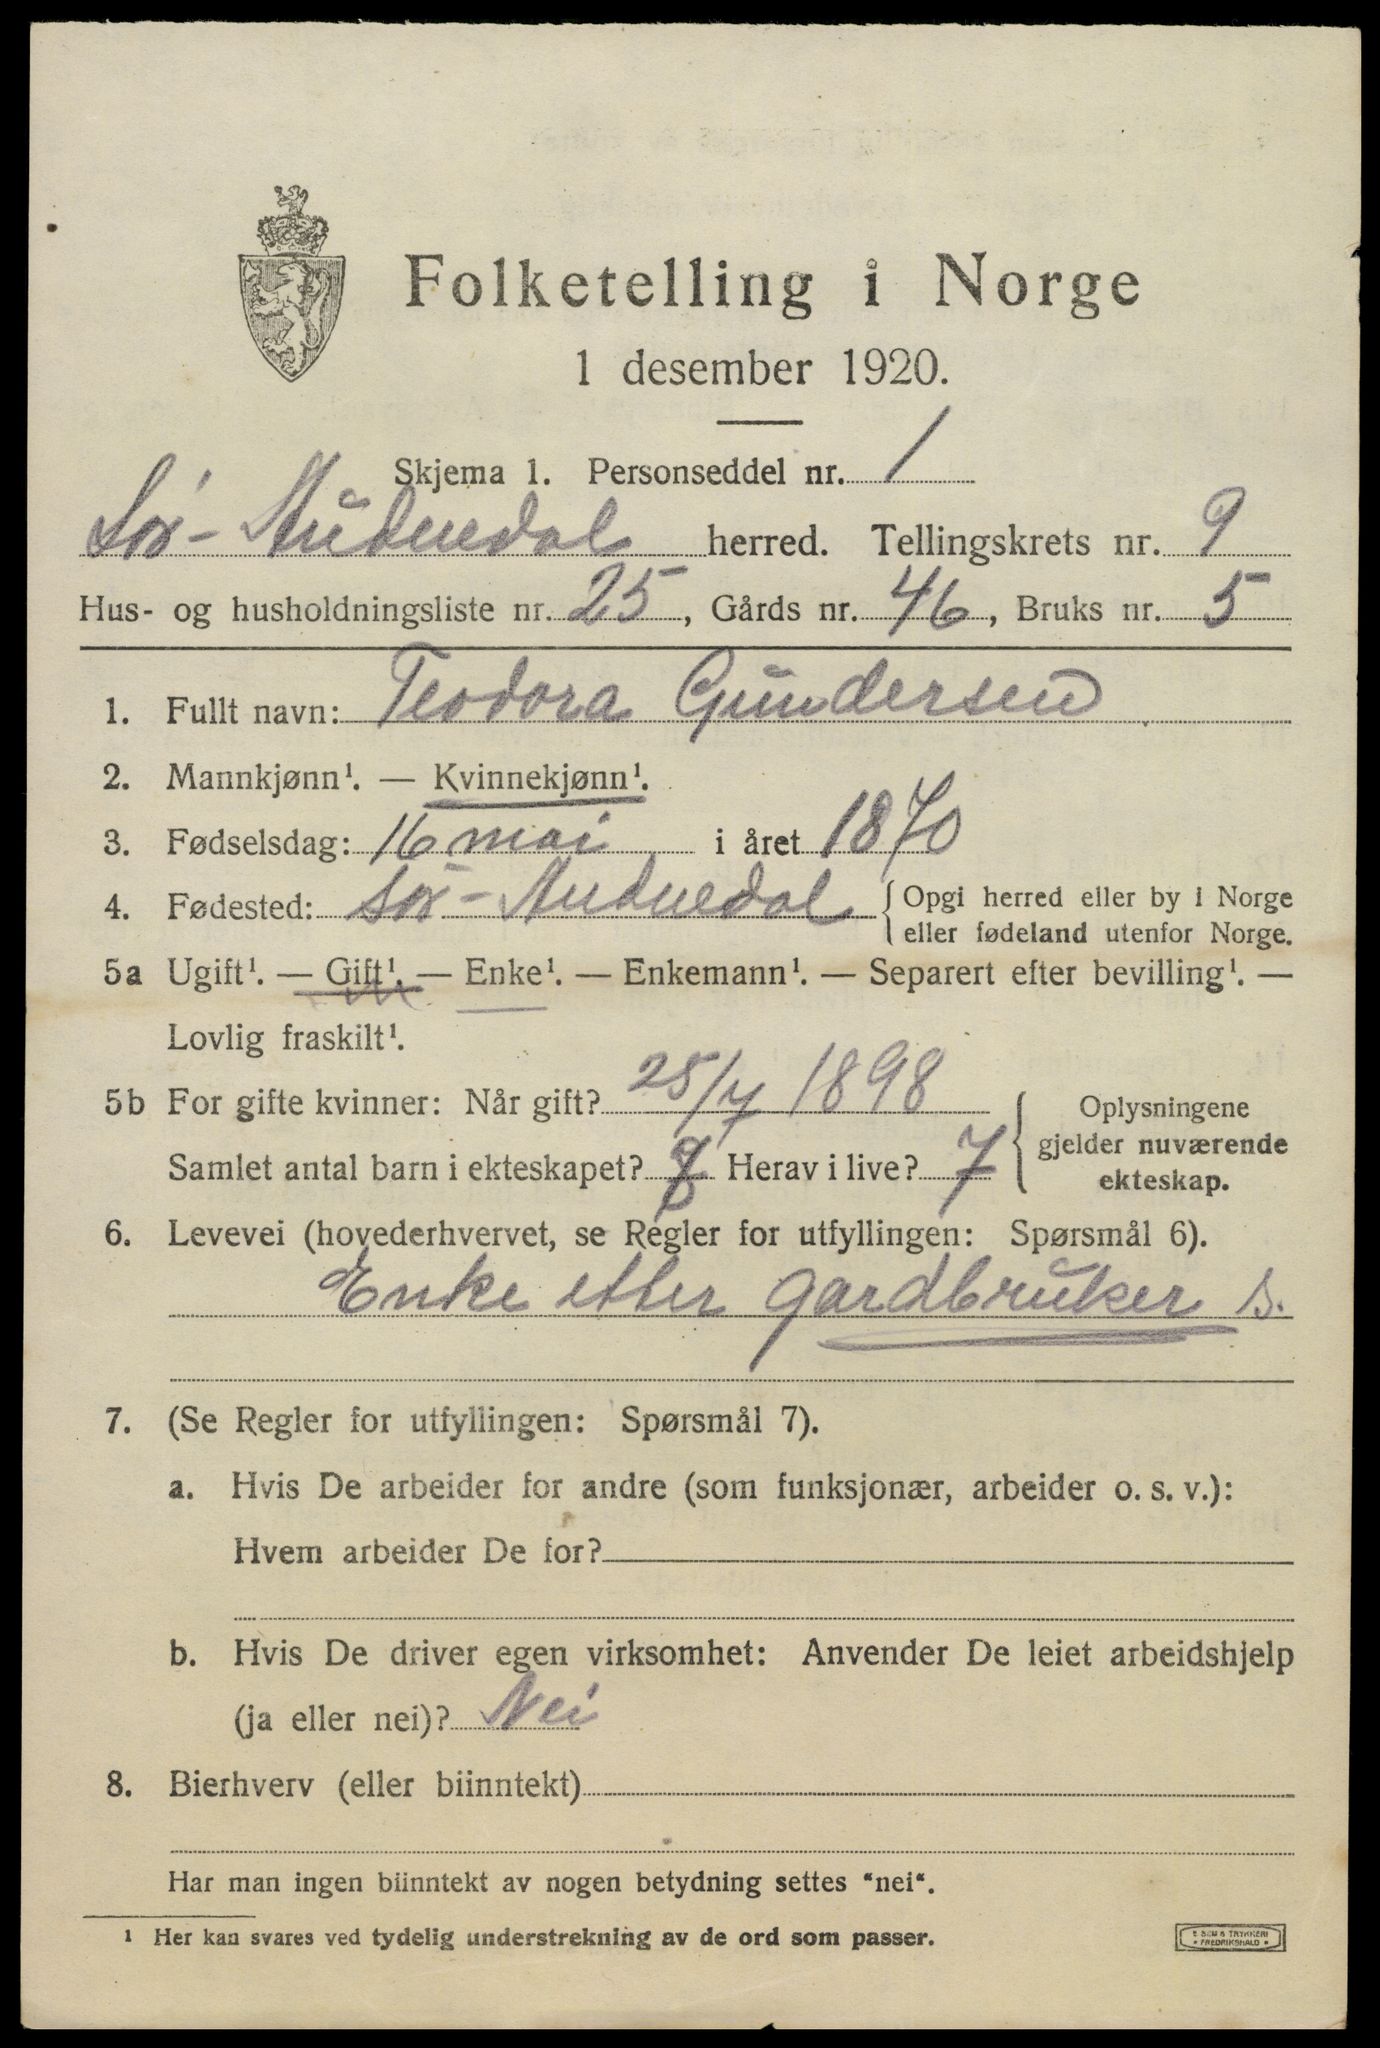 Folketelling i Norge
1 desember 1920.
Skjema 1. Personseddel nr. 1
Sör-Audnedal herred. Tellingskrets nr. 9
Hus- og husholdningsliste nr. 25, Gårds nr. 46, Bruks nr. 5
1. Fullt navn: Teodora Gundersen
2. Mannkjønn¹. — Kvinnekjønn¹.
3. Fødselsdag: 16 mai i året 1870
4. Fødested: Sör-Audnedal { Opgi herred eller by i Norge
eller fødeland utenfor Norge.
5a Ugift¹. — Gift¹. — Enke¹. — Enkemann¹. — Separert efter bevilling¹. —
Lovlig fraskilt¹.
5b For gifte kvinner: Når gift? 25/7 1898
Samlet antal barn i ekteskapet? 8 Herav i live? 7
Oplysningene
gjelder nuværende
ekteskap.
6. Levevei (hovederhvervet, se Regler for utfyllingen: Spørsmål 6).
Enke etter gardbruker s.
7. (Se Regler for utfyllingen: Spørsmål 7).
a. Hvis De arbeider for andre (som funksjonær, arbeider o. s. v.):
Hvem arbeider De for?
b. Hvis De driver egen virksomhet: Anvender De leiet arbeidshjelp
(ja eller nei)? Nei
8. Bierhverv (eller biinntekt)
Har man ingen biinntekt av nogen betydning settes "nei".
¹ Her kan svares ved tydelig understrekning av de ord som passer.
TRYKKERI
FREDRIKSHALD